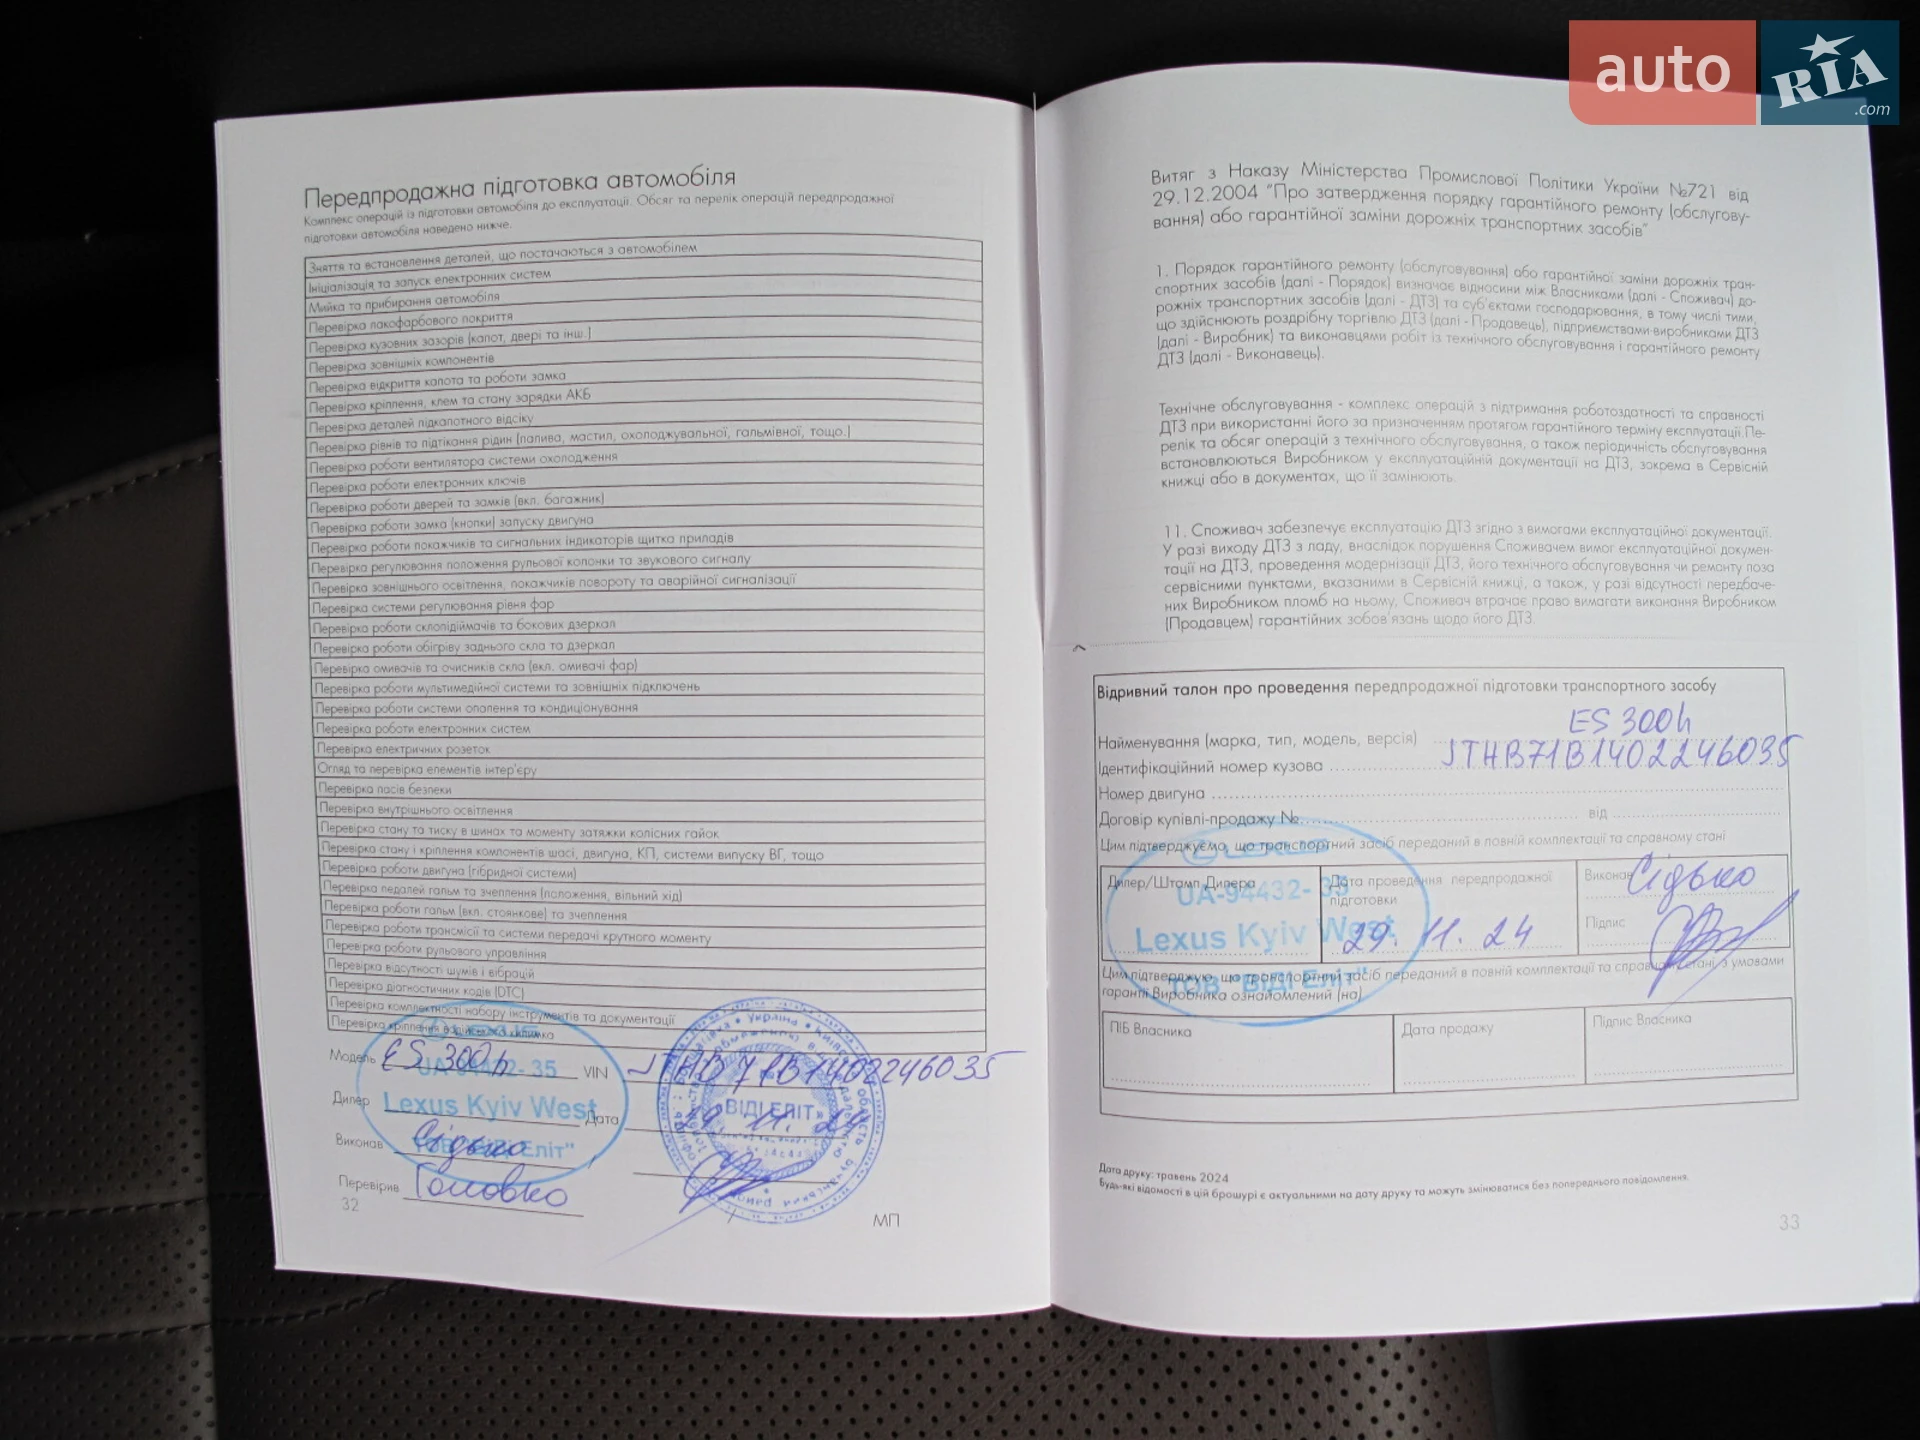 auto RIA .com
Передпродажна підготовка автомобіля
Комплекс операцій із підготовки автомобіля до експлуатації. Обсяг та перелік операцій передпродажної
підготовки автомобіля наведено нижче.
Зняття та встановлення деталей, що постачаються з автомобілем
Ініціалізація та запуск електронних систем
Мийка та прибирання автомобіля
Перевірка лакофарбового покриття
Перевірка кузовних зазорів (капот, двері та інш.)
Перевірка зовнішніх компонентів
Перевірка відкриття капота та роботи замка
Перевірка кріплення, клем та стану зарядки АКБ
Перевірка деталей підкапотного відсіку
Перевірка рівнів та підтікання рідин (палива, мастил, охолоджувальної, гальмівної, тощо.)
Перевірка роботи вентилятора системи охолодження
Перевірка роботи електронних ключів
Перевірка роботи дверей та замків (вкл. багажник)
Перевірка роботи замка (кнопки) запуску двигуна
Перевірка роботи покажчиків та сигнальних індикаторів щитка приладів
Перевірка регулювання положення рульової колонки та звукового сигналу
Перевірка зовнішнього освітлення, покажчиків повороту та аварійної сигналізації
Перевірка системи регулювання рівня фар
Перевірка роботи склопідіймачів та бокових дзеркал
Перевірка роботи обігріву заднього скла та дзеркал
Перевірка омивачів та очисників скла (вкл. омивачі фар)
Перевірка роботи мультимедійної системи та зовнішніх підключень
Перевірка роботи системи опалення та кондиціонування
Перевірка роботи електронних систем
Перевірка електричних розеток
Огляд та перевірка елементів інтер'єру
Перевірка пасів безпеки
Перевірка внутрішнього освітлення
Перевірка стану та тиску в шинах та моменту затяжки колісних гайок
Перевірка стану і кріплення компонентів шасі, двигуна, КП, системи випуску ВГ, тощо
Перевірка роботи двигуна (гібридної системи)
Перевірка педалей гальм та зчеплення (положення, вільний хід)
Перевірка роботи гальм (вкл. стоянкове) та зчеплення
Перевірка роботи трансмісії та системи передачі крутного моменту
Перевірка роботи рульового управління
Перевірка відсутності шумів і вібрацій
Перевірка діагностичних кодів (DTC)
Перевірка комплектності набору інструментів та документації
Перевірка кріплення водійського килимка
Модель ES 300h VIN JTHB71B1402246035
Дилер Lexus Kyiv West Дата 29.11.24
Виконав Сідько
Перевірив Головко
LEXUS
UA-94432-35
ТОВ "ВІДІ Еліт"
"ВІДІ ЕЛІТ"
32
МП
Витяг з Наказу Міністерства Промислової Політики України №721 від
29.12.2004 "Про затвердження порядку гарантійного ремонту (обслугову-
вання) або гарантійної заміни дорожніх транспортних засобів"
1. Порядок гарантійного ремонту (обслуговування) або гарантійної заміни дорожніх тран-
спортних засобів (далі - Порядок) визначає відносини між Власниками (далі - Споживач) до-
рожніх транспортних засобів (далі - ДТЗ) та суб'єктами господарювання, в тому числі тими,
що здійснюють роздрібну торгівлю ДТЗ (далі - Продавець), підприємствами-виробниками ДТЗ
(далі - Виробник) та виконавцями робіт із технічного обслуговування і гарантійного ремонту
ДТЗ (далі - Виконавець).
Технічне обслуговування - комплекс операцій з підтримання роботоздатності та справності
ДТЗ при використанні його за призначенням протягом гарантійного терміну експлуатації.Пе-
релік та обсяг операцій з технічного обслуговування, а також періодичність обслуговування
встановлюються Виробником у експлуатаційній документації на ДТЗ, зокрема в Сервісній
книжці або в документах, що її замінюють.
11. Споживач забезпечує експлуатацію ДТЗ згідно з вимогами експлуатаційної документації.
У разі виходу ДТЗ з ладу, внаслідок порушення Споживачем вимог експлуатаційної докумен-
тації на ДТЗ, проведення модернізації ДТЗ, його технічного обслуговування чи ремонту поза
сервісними пунктами, вказаними в Сервісній книжці, а також, у разі відсутності передбаче-
них Виробником пломб на ньому, Споживач втрачає право вимагати виконання Виробником
(Продавцем) гарантійних зобов'язань щодо його ДТЗ.
Відривний талон про проведення передпродажної підготовки транспортного засобу
Найменування (марка, тип, модель, версія) ES 300h
Ідентифікаційний номер кузова JTHB71B1402246035
Номер двигуна
Договір купівлі-продажу № від
Цим підтверджуємо, що транспортний засіб переданий в повній комплектації та справному стані
Дилер/Штамп Дилера Дата проведення передпродажної підготовки 29.11.24 Виконав Сідько
Підпис
LEXUS
UA-94432-35
Lexus Kyiv West
ТОВ "ВІДІ Еліт"
Цим підтверджую, що транспортний засіб переданий в повній комплектації та справному стані, з умовами
гарантії Виробника ознайомлений (на)
ПІБ Власника Дата продажу Підпис Власника
Дата друку: травень 2024
Будь-які відомості в цій брошурі є актуальними на дату друку та можуть змінюватися без попереднього повідомлення.
33